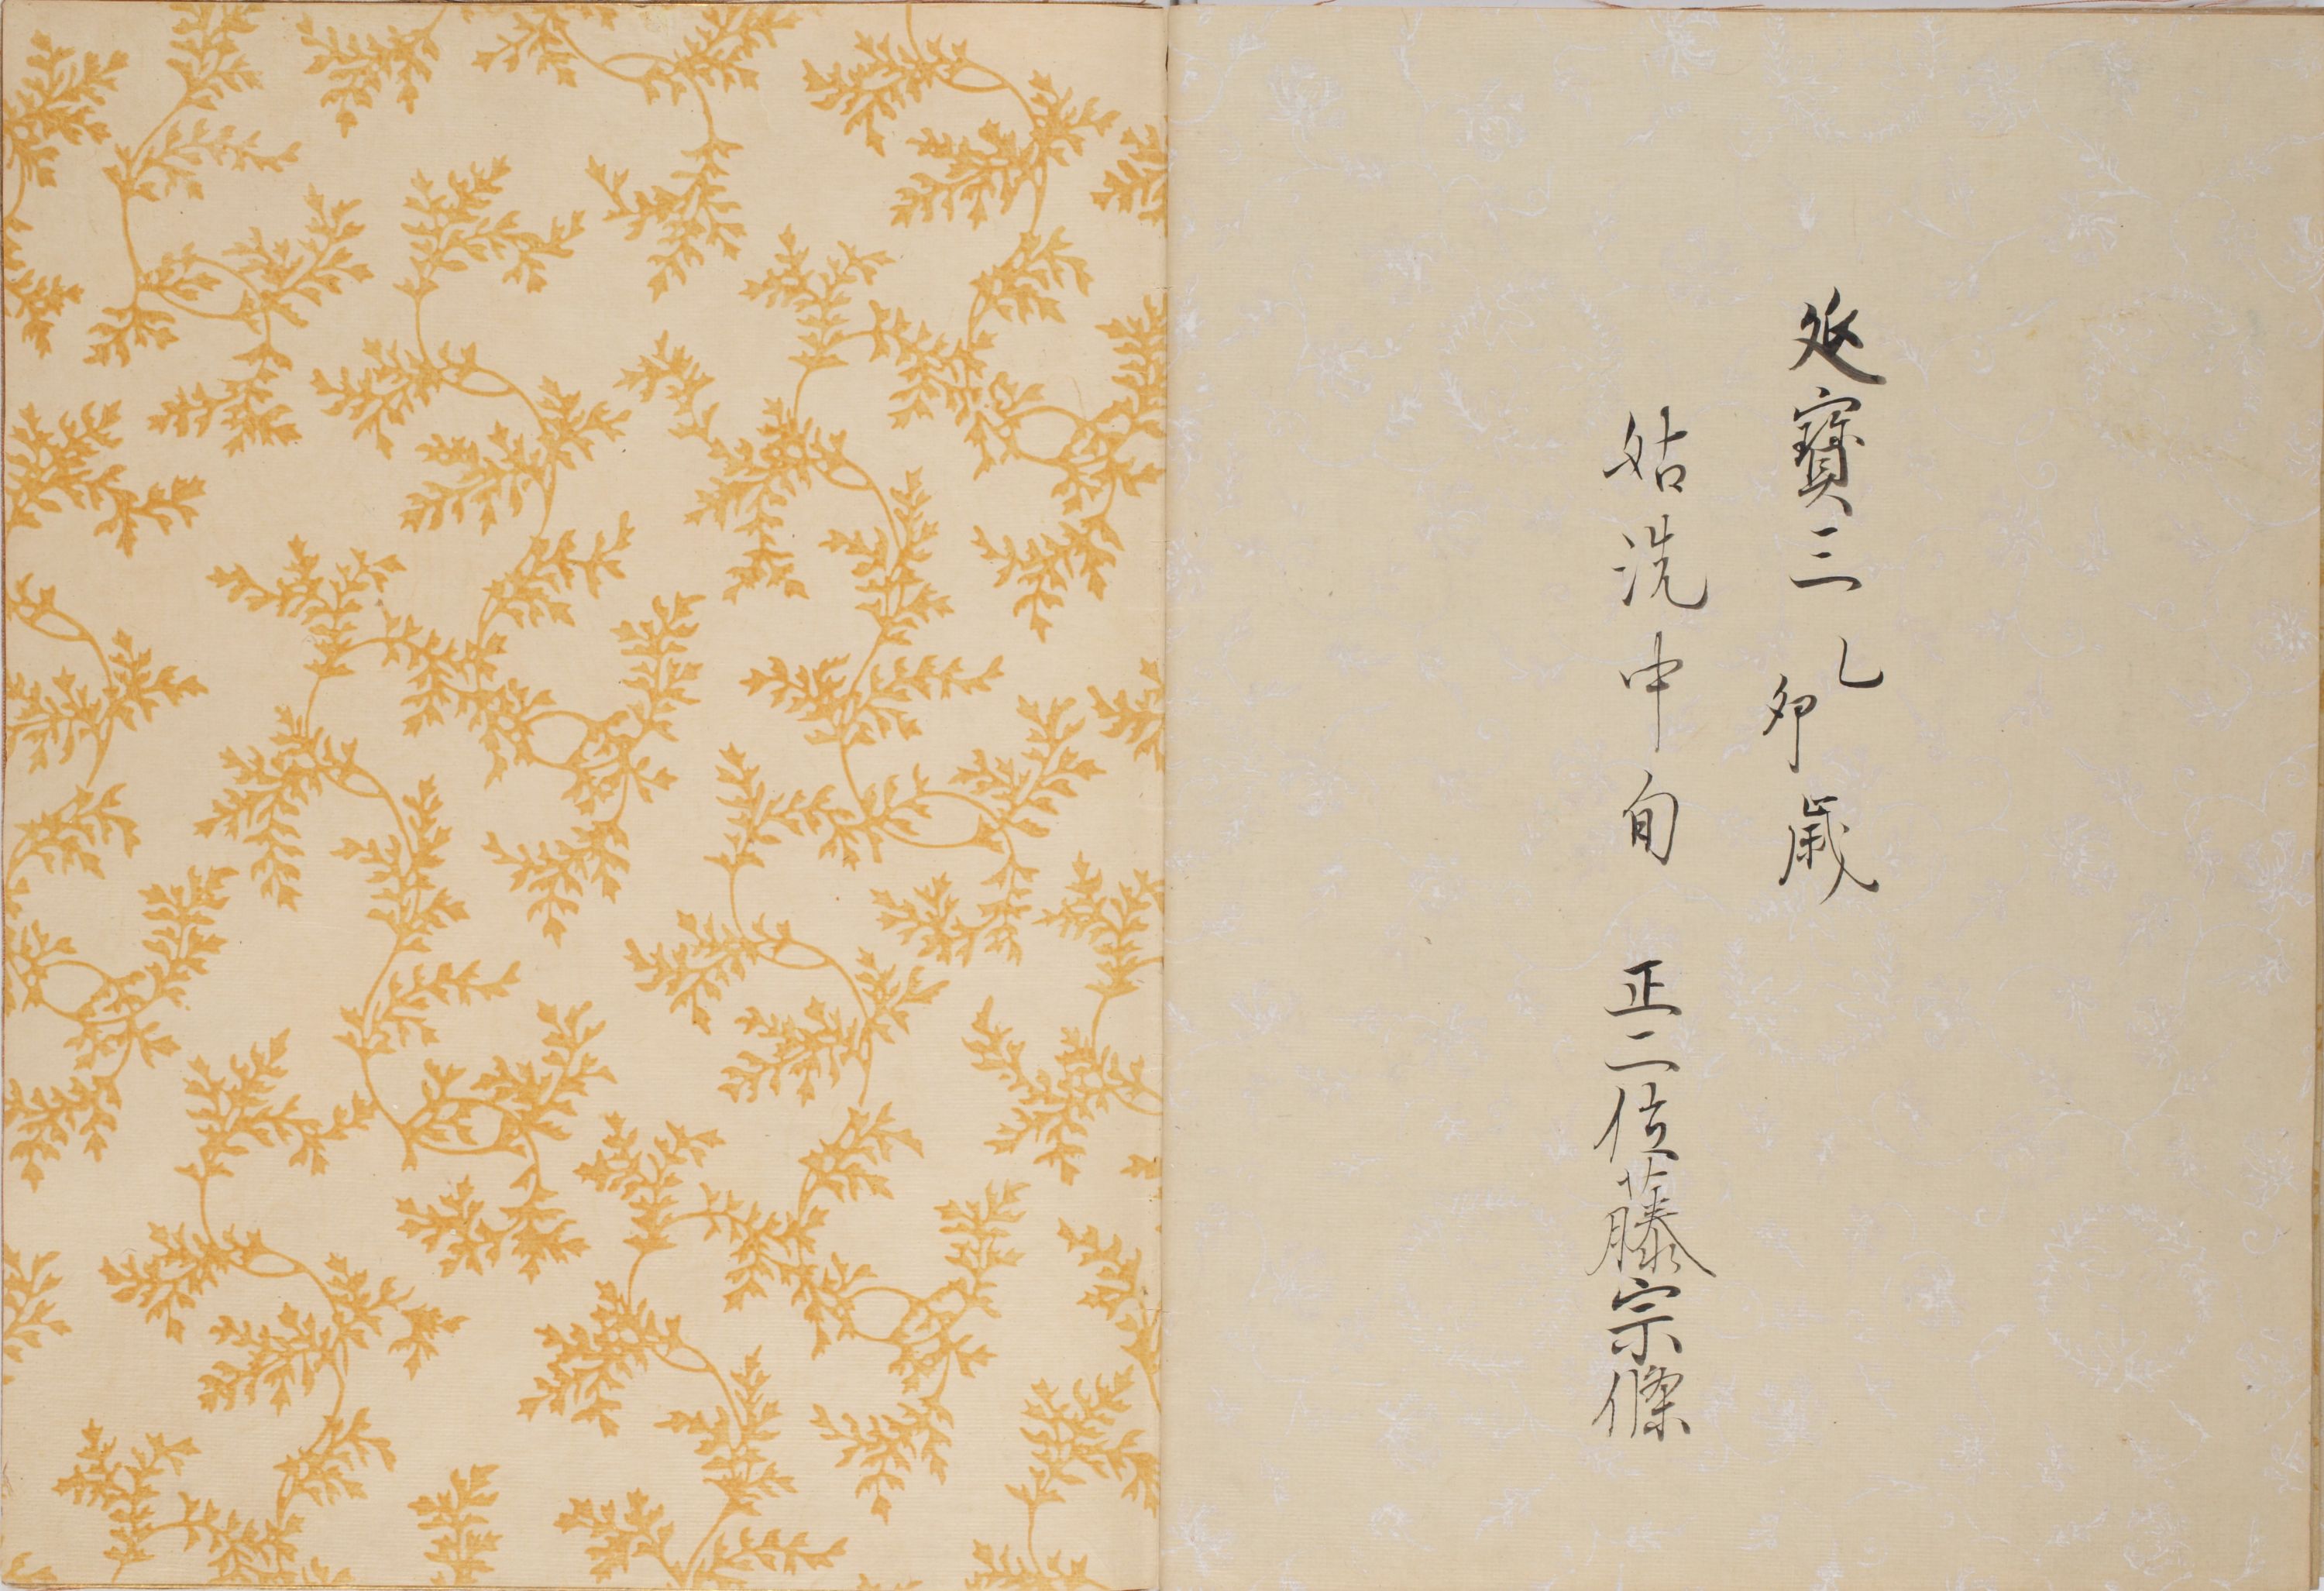 延寳三乙卯歳
姑洗中旬 正二位藤宗條